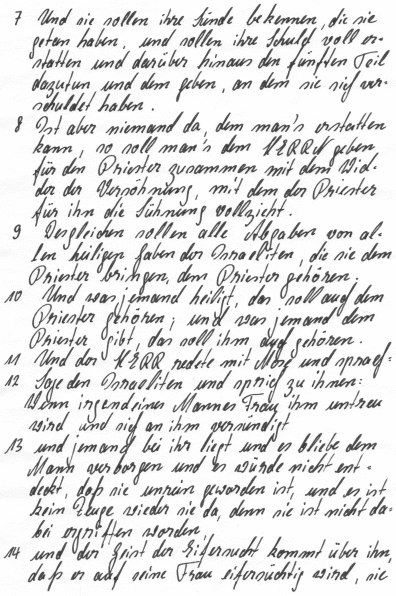 7 Und sie sollen ihre Sünde bekennen, die sie
getan haben, und sollen ihre Schuld voll er-
statten und darüber hinaus den fünften Teil
dazutun und dem geben, an dem sie sich ver-
schuldet haben.
8 Ist aber niemand da, dem man's erstatten
kann, so soll man's dem HERRN geben
für den Priester zusammen mit dem Wid-
der der Versöhnung, mit dem der Priester
für ihn die Sühnung vollzieht.
9 Desgleichen sollen alle Abgaben von al-
len heiligen Gaben der Israeliten, die sie dem
Priester bringen, dem Priester gehören.
10 Und was jemand heiligt, das soll auch dem
Priester gehören; und was jemand dem
Priester gibt, das soll ihm auch gehören.
11 Und der HERR redete mit Mose und sprach:
12 Sage den Israeliten und sprich zu ihnen:
Wenn irgendeines Mannes Frau ihm untreu
wird und sich an ihm versündigt
13 und jemand bei ihr liegt und es bliebe dem
Mann verborgen und es würde nicht ent-
deckt, daß sie unrein geworden ist, und es ist
kein Zeuge wieder sie da, denn sie ist nicht da-
bei ergriffen worden,
14 und der Geist der Eifersucht kommt über ihn,
daß er auf seine Frau eifersüchtig wird, sie